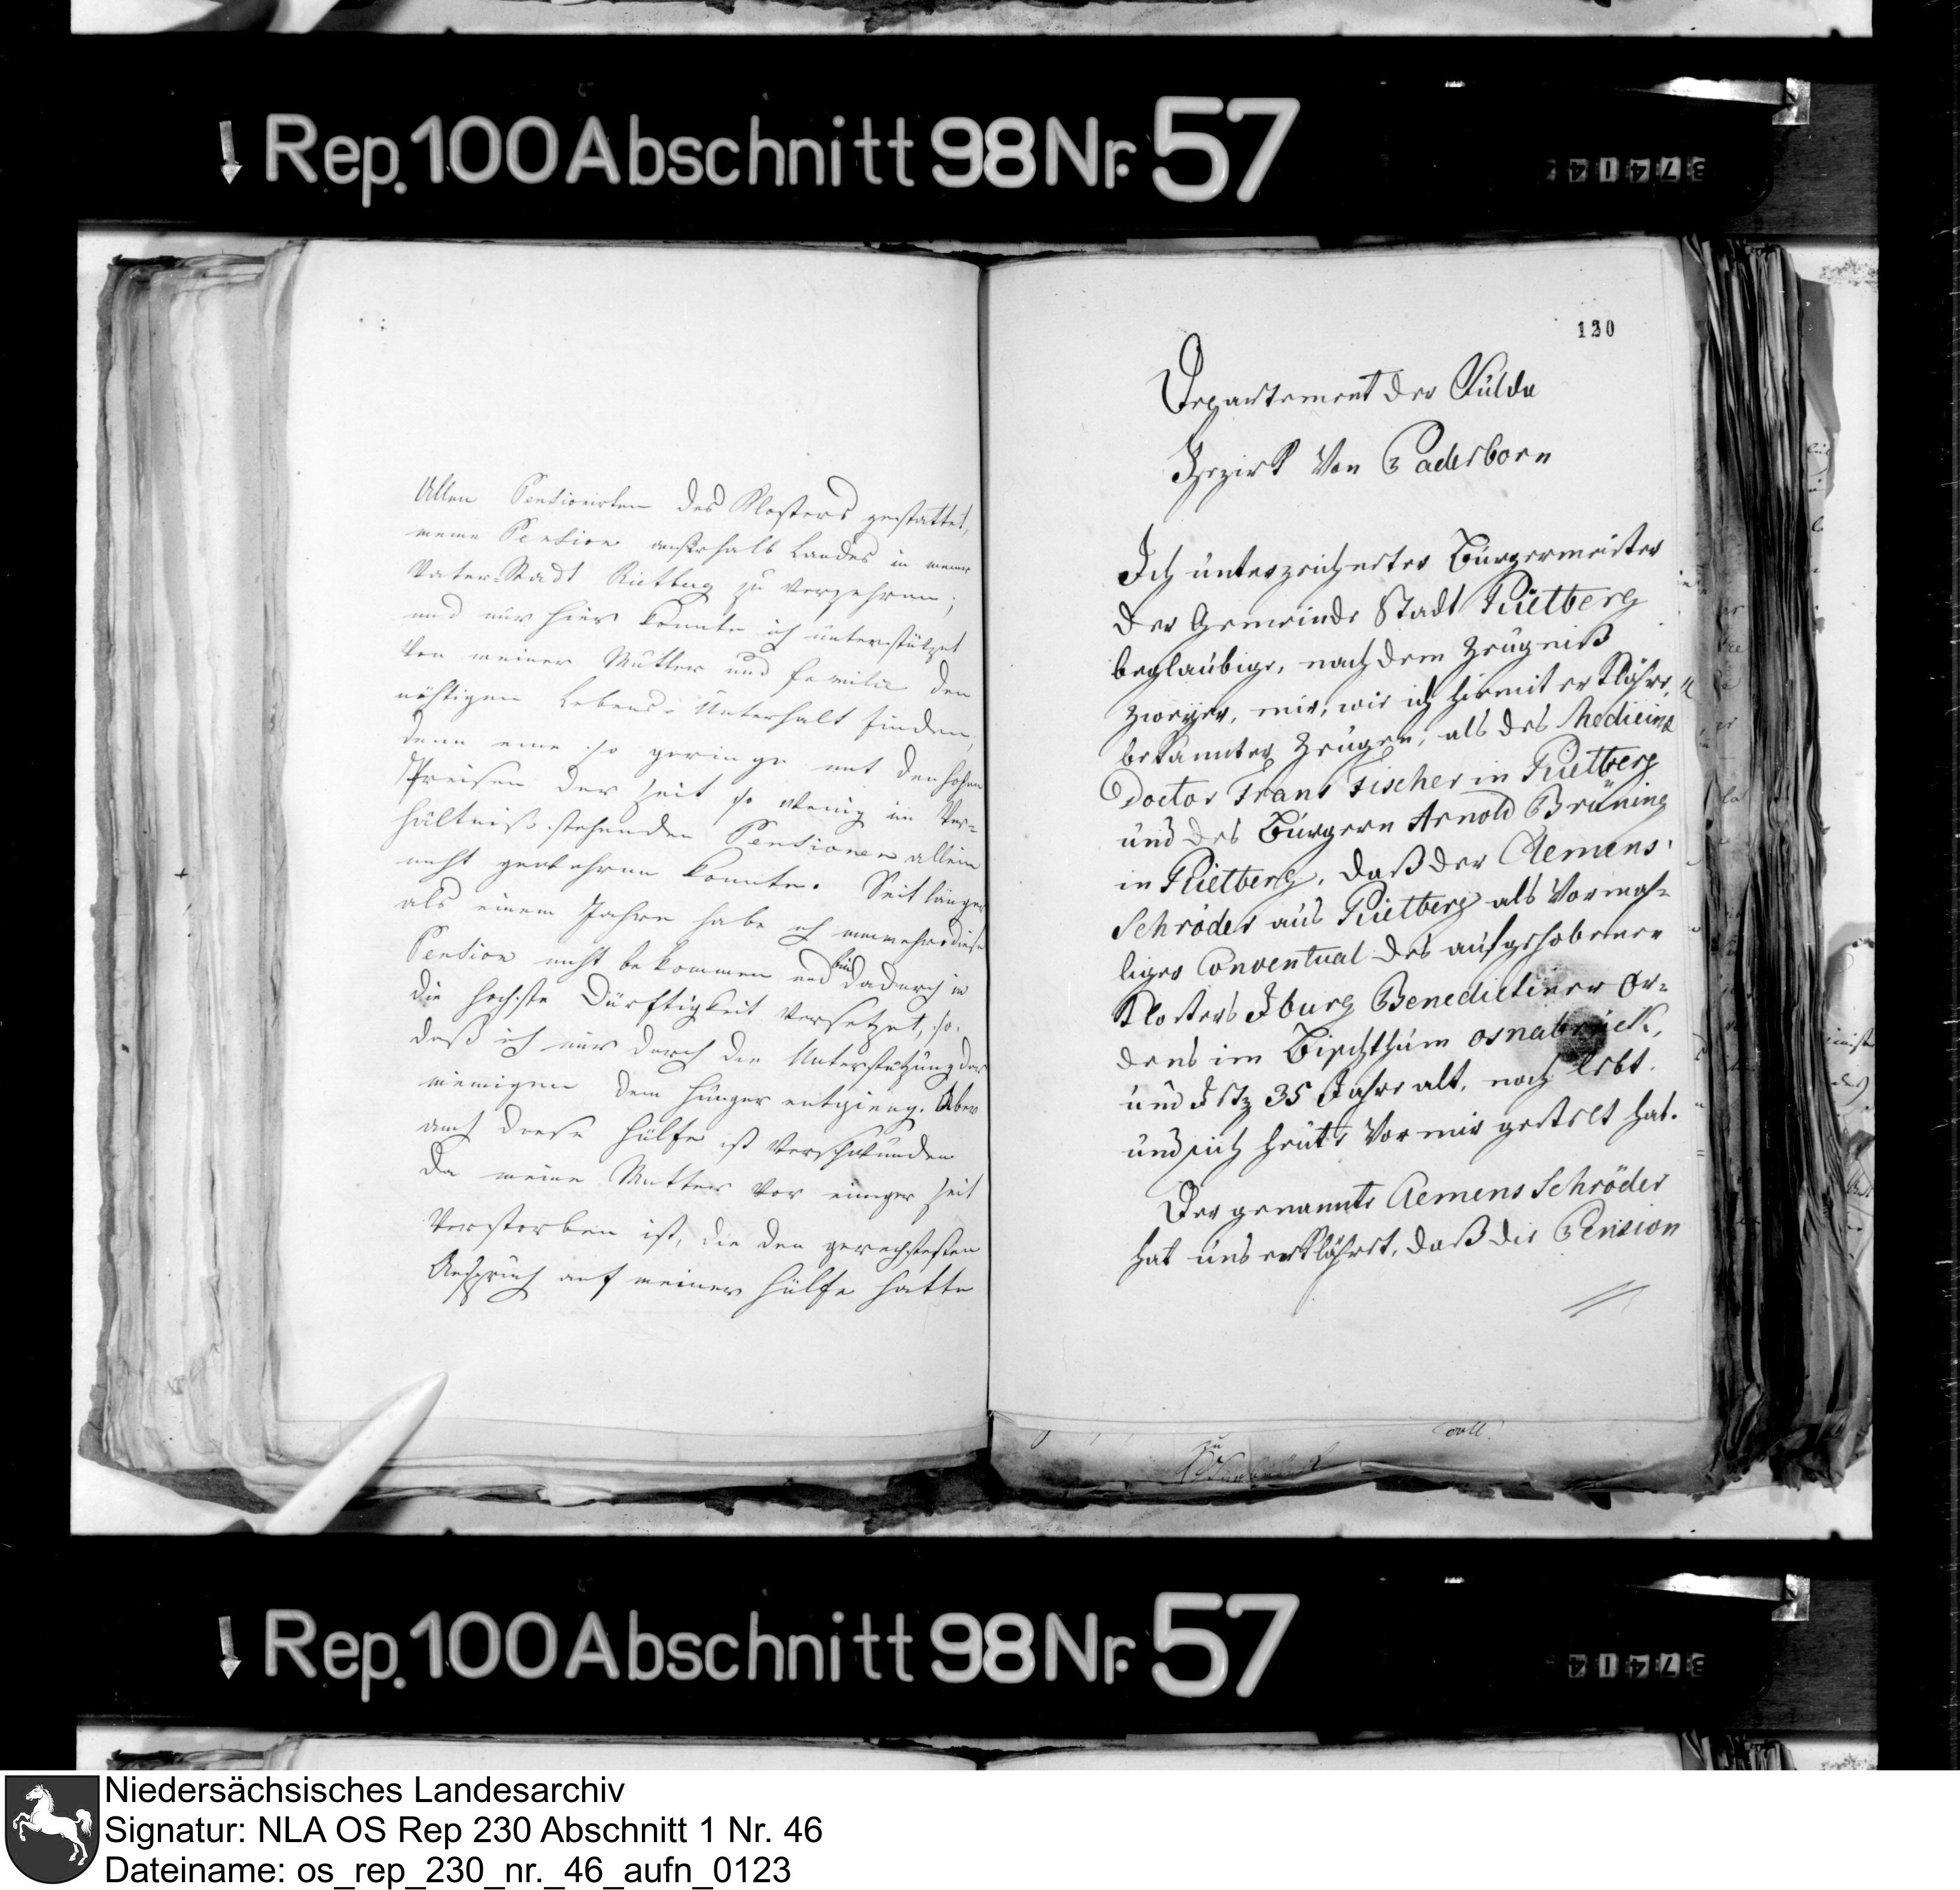 Rep. 100 Abschnitt 98 Nr. 57
37414
Allen Pensionisten des Klosters gestattet,
meine Pension außerhalb Landes in meiner
Vater-Stadt Rietbug zu verzehren;
und nur hier konnte ich unterstützet
von meiner Mutter und Familie den
nöthigen Lebens-Unterhalt finden,
denn eine so geringe mit den hohen
Preisen der Zeit so wenig im Ver-
hältniß stehenden Pensionen allein
nicht gewähren konnte. Seit länger
als einem Jahre habe ich nunmehro diese
Pension nicht bekommen und bin dadurch in
die höchste Dürftigkeit versetzet, so
daß ich nur durch die Unterstützung der
meinigen dem Hunger entgieng. Aber
auch diese Hülfe ist verschwunden
da meine Mutter vor einiger Zeit
verstorben ist, die den gerechtesten
Anspruch auf meiner Hülfe hatte
130
Departement der Fulda
Bezirk von Paderborn
Ich unterzeichneter Bürgermeister
der Gemeinde Stadt Rietberg
beglaubige, nach dem Zeugniß
zweyer, mir, wie ich hiermit erklähre,
bekannter Zeugen, als des Medicina
Doctor Frans Fischer in Rietberg
und des Bürgern Arnold Brüning
in Rietberg, daß der Clemens
Schröder aus Rietberg als vormah-
liger Conventual des aufgehobenen
Klosters Iburg Benedictiner Or-
dens im Bischthum Osnabrück,
und Jetz 35 Jahre alt, noch lebt.
und sich heute vor mir gestelt hat.
Der genannte Clemens Schröder
hat uns erklährt, daß die Pension
Rep. 100 Abschnitt 98 Nr. 57
37414
Niedersächsisches Landesarchiv
Signatur: NLA OS Rep 230 Abschnitt 1 Nr. 46
Dateiname: os_rep_230_nr._46_aufn_0123